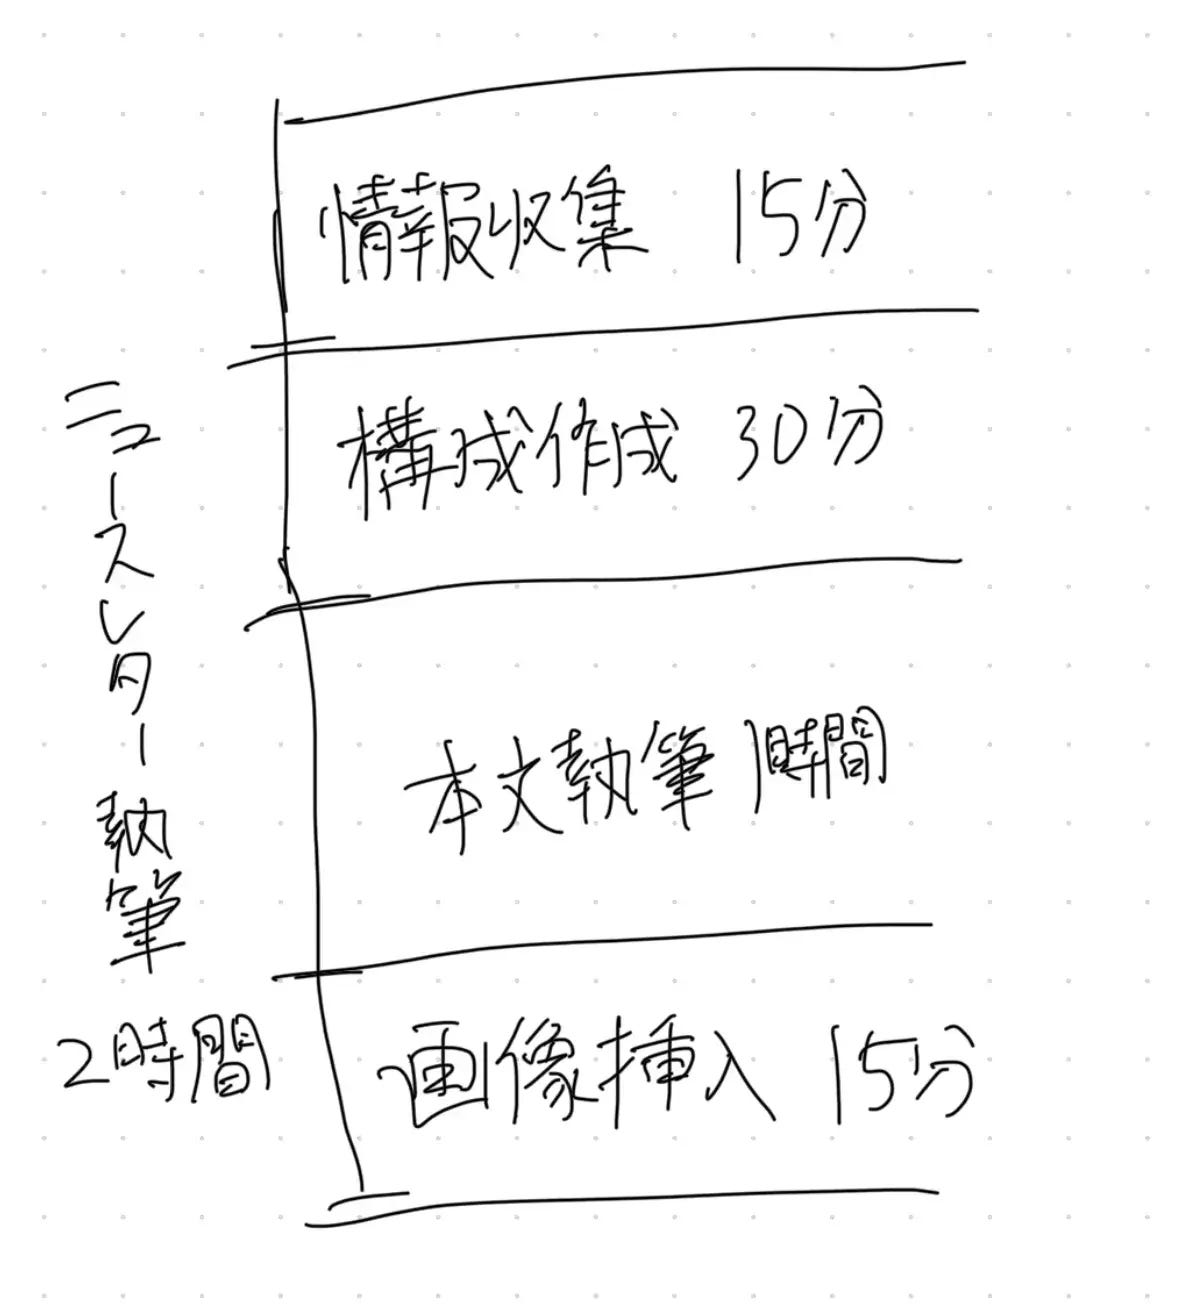 ニュースレター執筆
2時間
情報収集 15分
構成作成 30分
本文執筆 1時間
画像挿入 15分